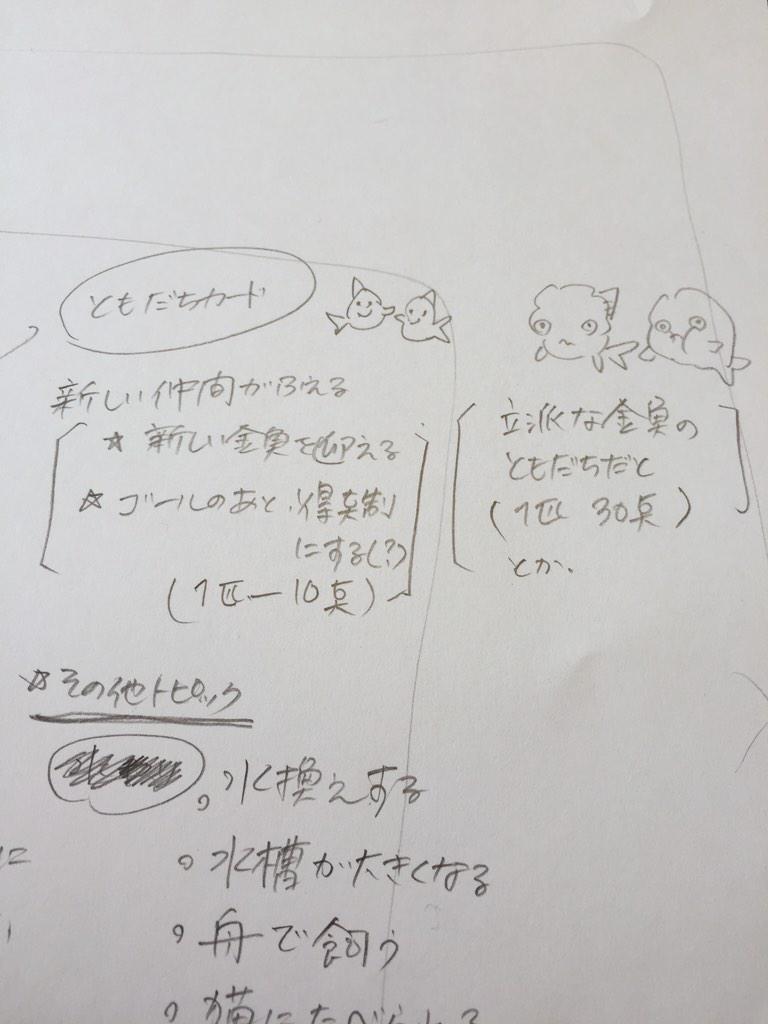 ともだちカード
新しい仲間がふえる
☆ 新しい金魚を迎える
☆ ゴールのあと、得点制
にする(?)
(1匹―10点)
立派な金魚の
ともだちだと
(1匹 30点)
とか。
☆その他トピック
。水換えする
。水槽が大きくなる
。舟で飼う
。猫にたべられる
に